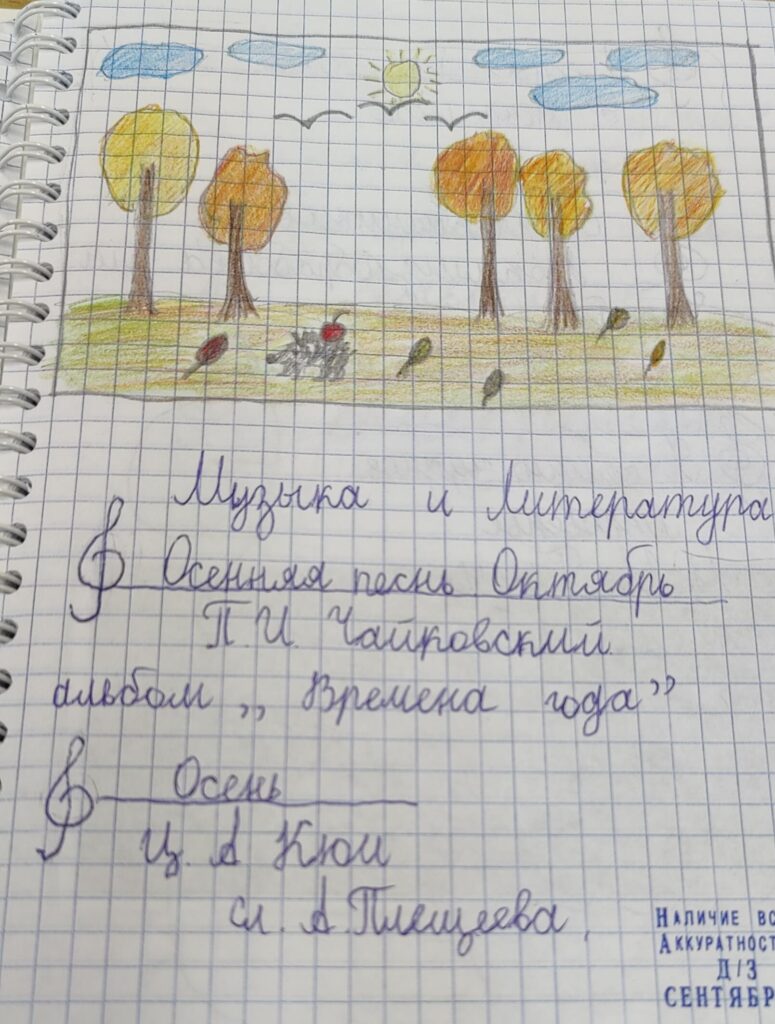 Музыка и Литература
Осенняя песнь Октябрь
П. И. Чайковский
альбом „ Времена года”
Осень
Ц. А Кюи
сл. А. Плещеева
НАЛИЧИЕ
АККУРАТНОСТ
Д/З
СЕНТЯБР